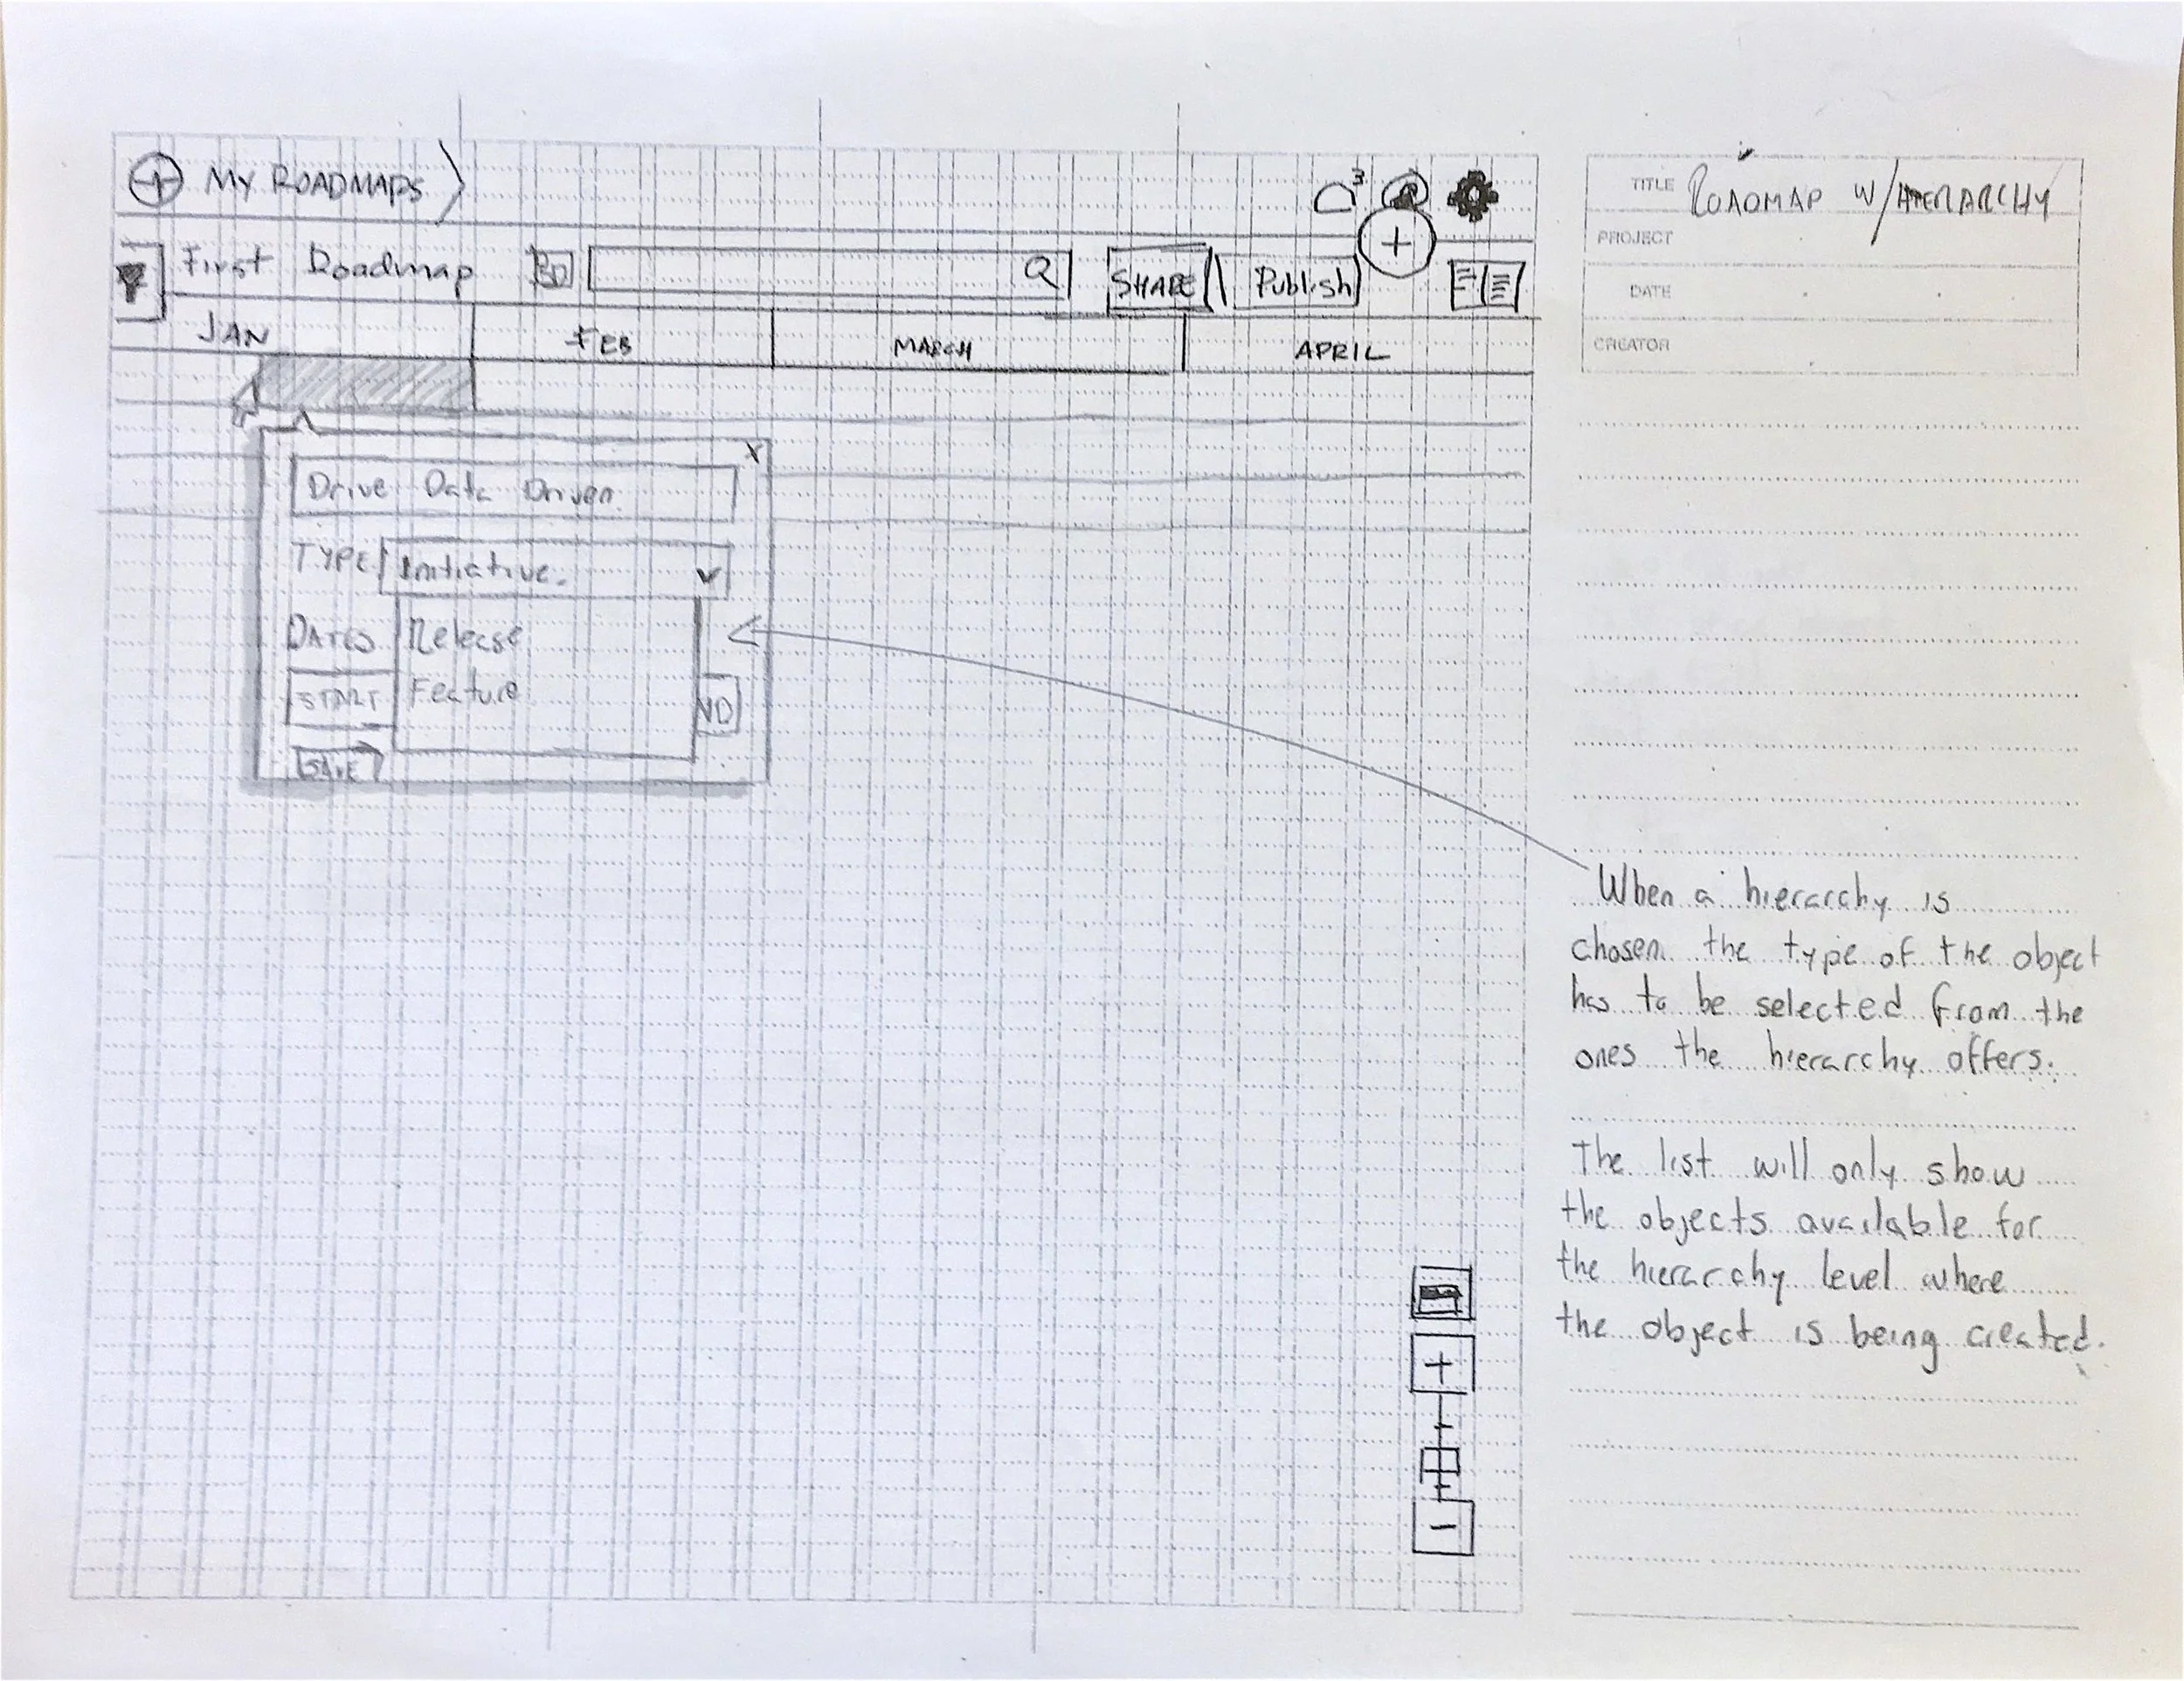 MY ROADMAPS
3
First Roadmap
SHARE
Publish
JAN
FEB
MARCH
APRIL
X
Drive Data Driven
TYPE
Initiative.
DATES
Release
Feature
START
ND
SAVE
TITLE ROADMAP W/HIERARCHY
PROJECT
DATE
CREATOR
When a hierarchy is
chosen the type of the object
has to be selected from the
ones the hierarchy offers.
The list will only show
the objects available for
the hierarchy level where
the object is being created.